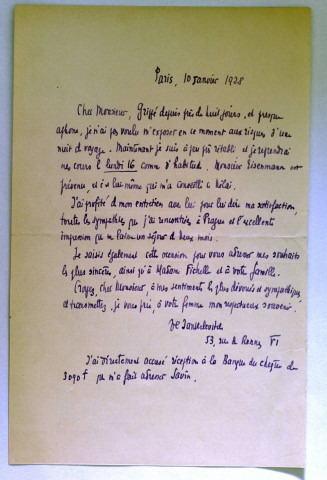 Paris, 10 Janvier 1928
Cher Monsieur, Grippé depuis près de huit jours, et presque
aphone, je n'ai pas voulu m'exposer en ce moment aux risques d'une
nuit de voyage. Maintenant je suis à peu près rétabli et je reprendrai
mes cours le lundi 16 comme d'habitude. Monsieur Eisenmann est
prévenu, et c'est lui même qui m'a conseillé ce délai.
J'ai profité de mon entretien avec lui pour lui dire ma satisfaction,
toute la sympathie que j'ai rencontrée à Prague et l'excellente
impression que me laisse un séjour de deux mois.
Je saisis également cette occasion pour vous adresser mes souhaits
les plus sincères, ainsi qu'à Madame Fichelle et à votre famille.
Croyez, cher Monsieur, à mes sentiments les plus dévoués et sympathiques,
et transmettez, je vous prie, à votre femme mon respectueux souvenir.
VJankélévitch
53, rue de Rennes VI
J'ai directement accusé réception à la Banque du chèque de
3090 f que m'a fait adresser